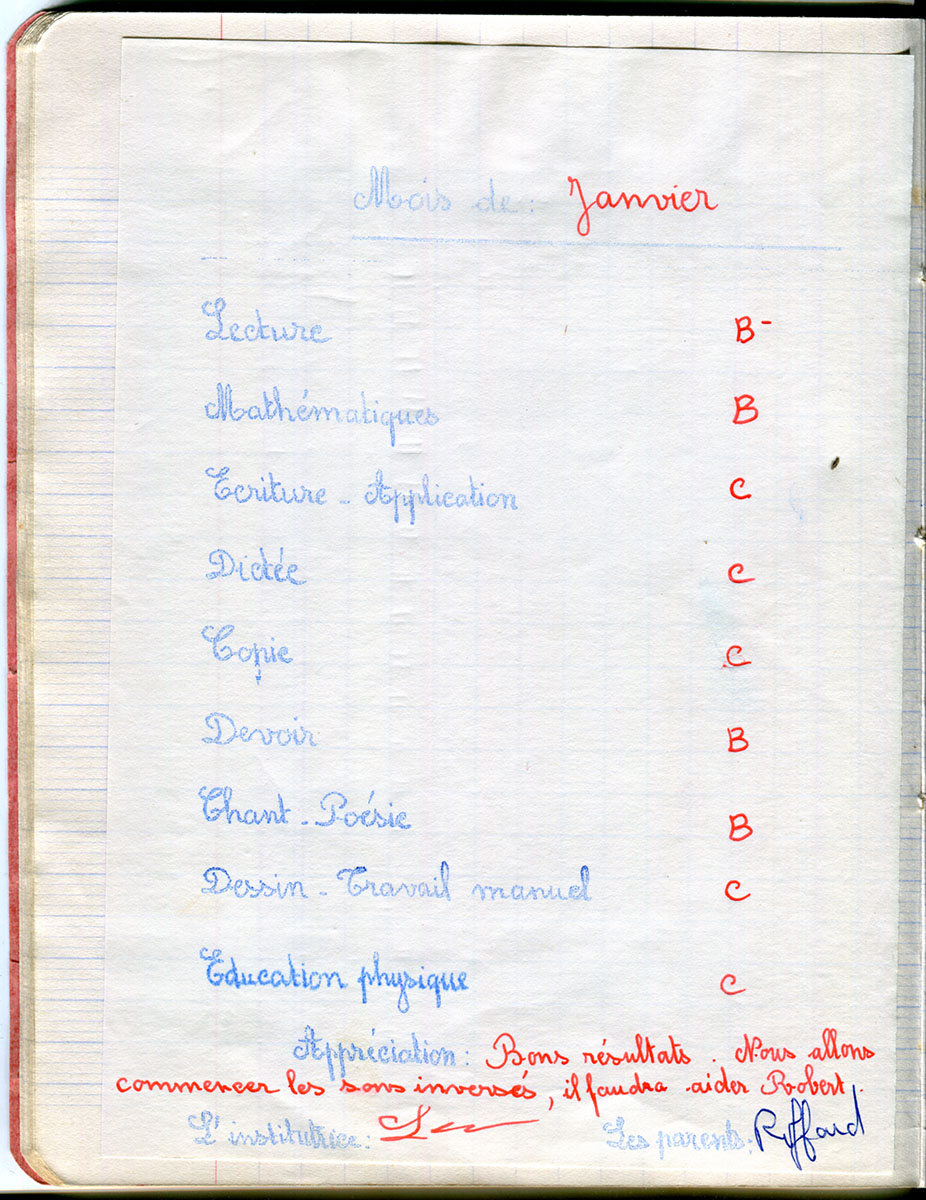 Mois de : Janvier
Lecture B-
Mathématiques B
Ecriture - Application C
Dictée C
Copie C
Devoir B
Chant - Poésie B
Dessin - Travail manuel C
Education physique C
Appréciation : Bons résultats. Nous allons
commencer les sons inversés, il faudra aider Robert.
L'institutrice : Les parents : Riffard